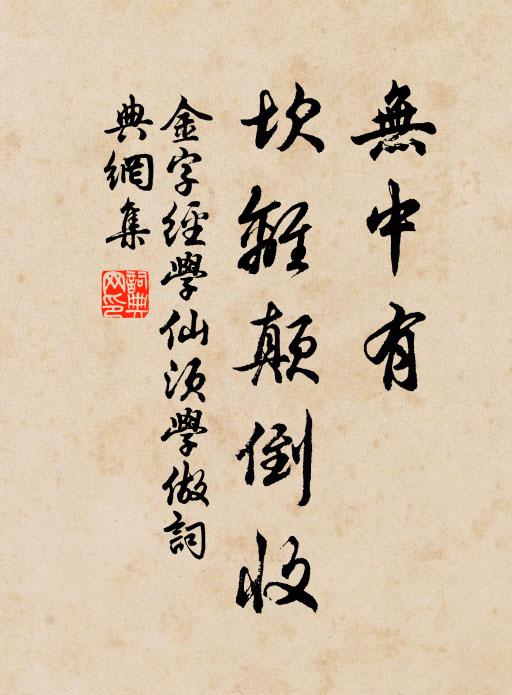 無中有
坎離顛倒收
金字經學仙須學做詞
典網集
詞典网印